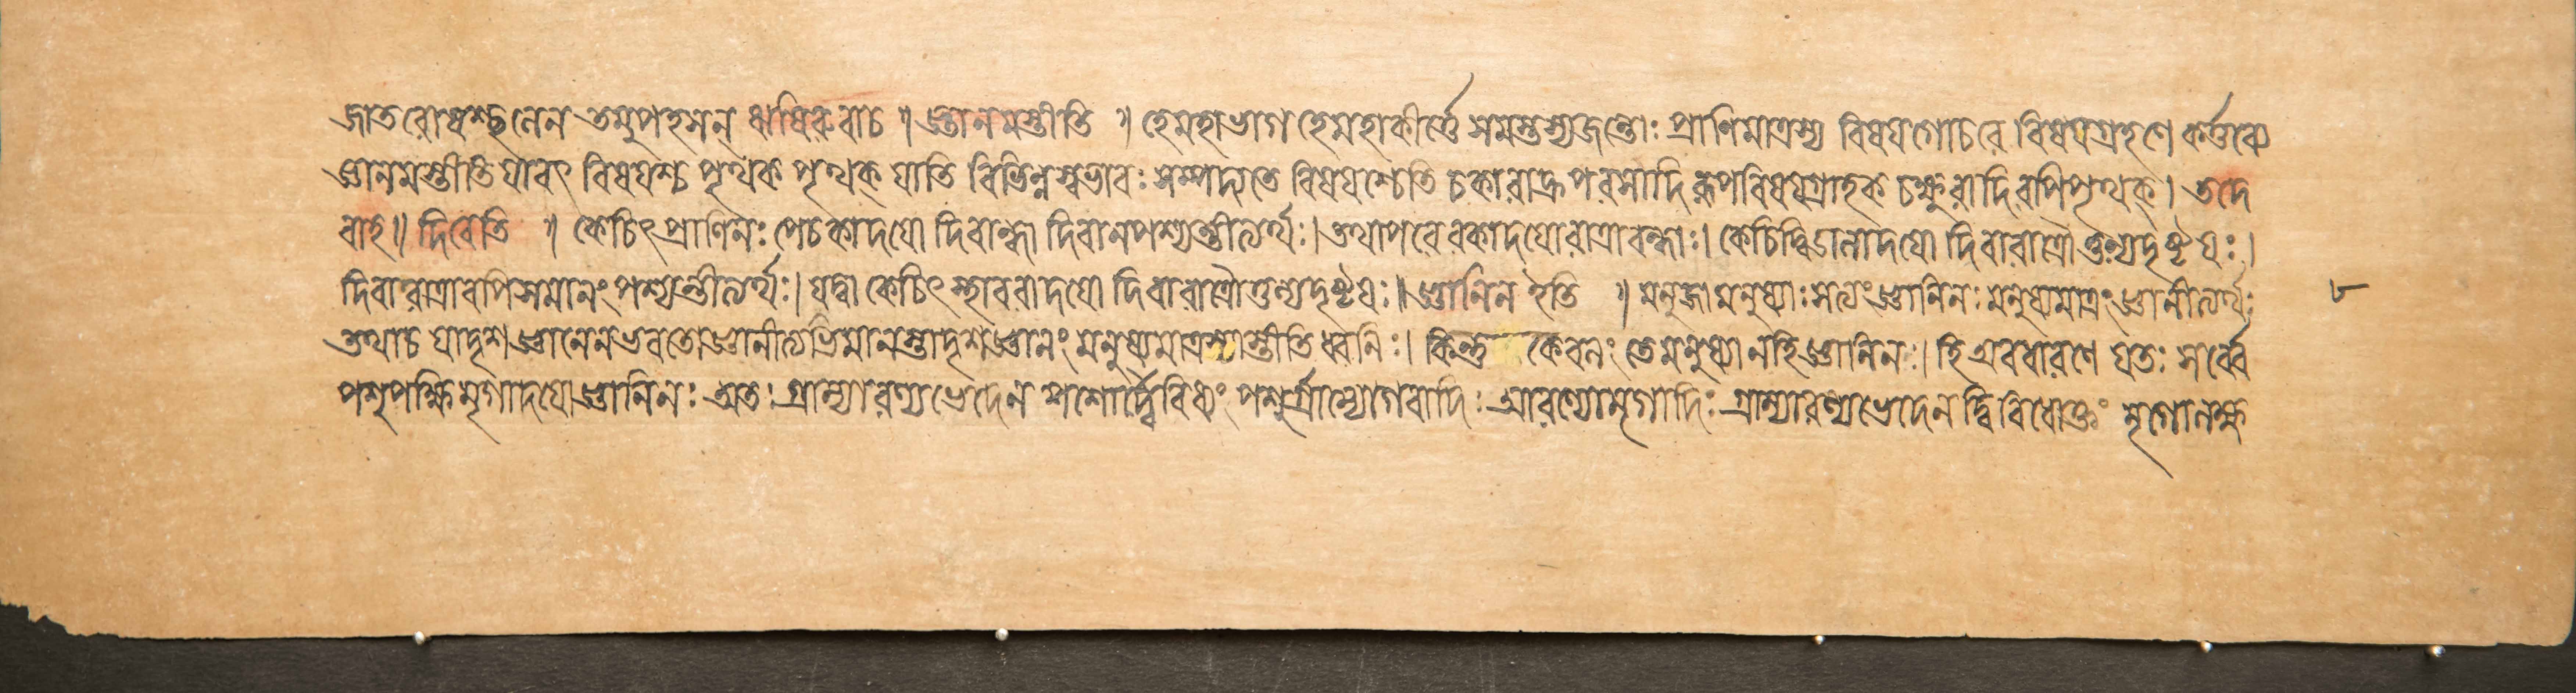 জাতরোষশ্ছনেন তমুপহসন্ ঋষিরুবাচ ॥ জ্ঞানমস্তীতি ॥ হেমহাভাগ হেমহাকীর্ত্তে সমস্তস্যজন্তোঃ প্রাণিমাত্রস্য বিষয়গোচরে বিষয়গ্রহণে কর্ত্তব্যে
জ্ঞানমস্তীতিযাবৎ বিষয়শ্চ পৃথক পৃথক্ যাতি বিভিন্নস্বভাবঃ সম্পদ্যতে বিষয়শ্চেতি চকারাদ্রূপরসাদি রূপবিষয়গ্রাহক চক্ষুরাদিরপিপৃথক্। তদে
বাহ॥ দিবেতি ॥ কেচিৎপ্রাণিনঃ পেচকাদয়ো দিবান্ধা দিবানপশ্যন্তীত্যর্থঃ। তথাপরে বকাদয়োরাত্রাবন্ধাঃ। কেচিদ্বিডালাদয়ো দিবারাত্রৌতুল্যদৃষ্টয়ঃ।
দিবারাত্রাবপিসমানং পশ্যন্তীত্যর্থঃ। যদ্বা কেচিৎ স্থাবরাদয়ো দিবারাত্রৌতুল্যদৃষ্টয়ঃ॥ জ্ঞানিন ইতি ॥ মনুজামনুষ্যাঃসত্যংজ্ঞানিনঃ মনুষ্যমাত্রংজ্ঞানীত্যর্থঃ ৮
তথাচ যাদৃশজ্ঞানেনভবতোজ্ঞানীত্যভিমানস্তাদৃশজ্ঞানং মনুষ্যমাত্রস্যাস্তীতিধ্বনিঃ। কিন্তু কেবলং তেমনুষ্যানহিজ্ঞানিনঃ। হিঅবধারণে যতঃ সর্ব্বে
পশুপক্ষিমৃগাদয়োজ্ঞানিনঃ অতঃ গ্রাম্যারণ্যভেদেন পশোর্দ্বৈবিধ্যং পশুর্গ্রাম্যোগবাদিঃ আরণ্যোমৃগাদিঃ গ্রাম্যারণ্যভেদেন দ্বিবিধোক্তং